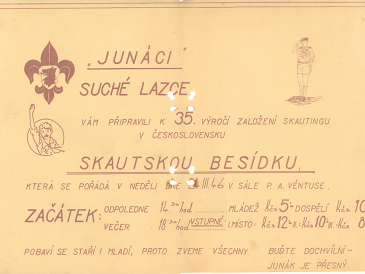 „JUNÁCI"
SUCHÉ LAZCE
VÁM PŘIPRAVILI K 35. VÝROČÍ ZALOŽENÍ SKAUTINGU
V ČESKOSLOVENSKU
SKAUTSKOU BESÍDKU,
KTERÁ SE POŘÁDÁ V NEDĚLI DNE III.46 V SÁLE P. A. VĚNTUSE.
ZAČÁTEK: ODPOLEDNE 14 hod MLÁDEŽ Kčs 5= DOSPĚLÍ Kčs 10
VEČER 18 hod VSTUPNÉ: I.MÍSTO: Kčs 12 Kčs 10 Kčs 8
POBAVÍ SE STAŘÍ I MLADÍ, PROTO ZVEME VŠECHNY. BUĎTE DOCHVÍLNÍ-
JUNÁK JE PŘESNÝ.